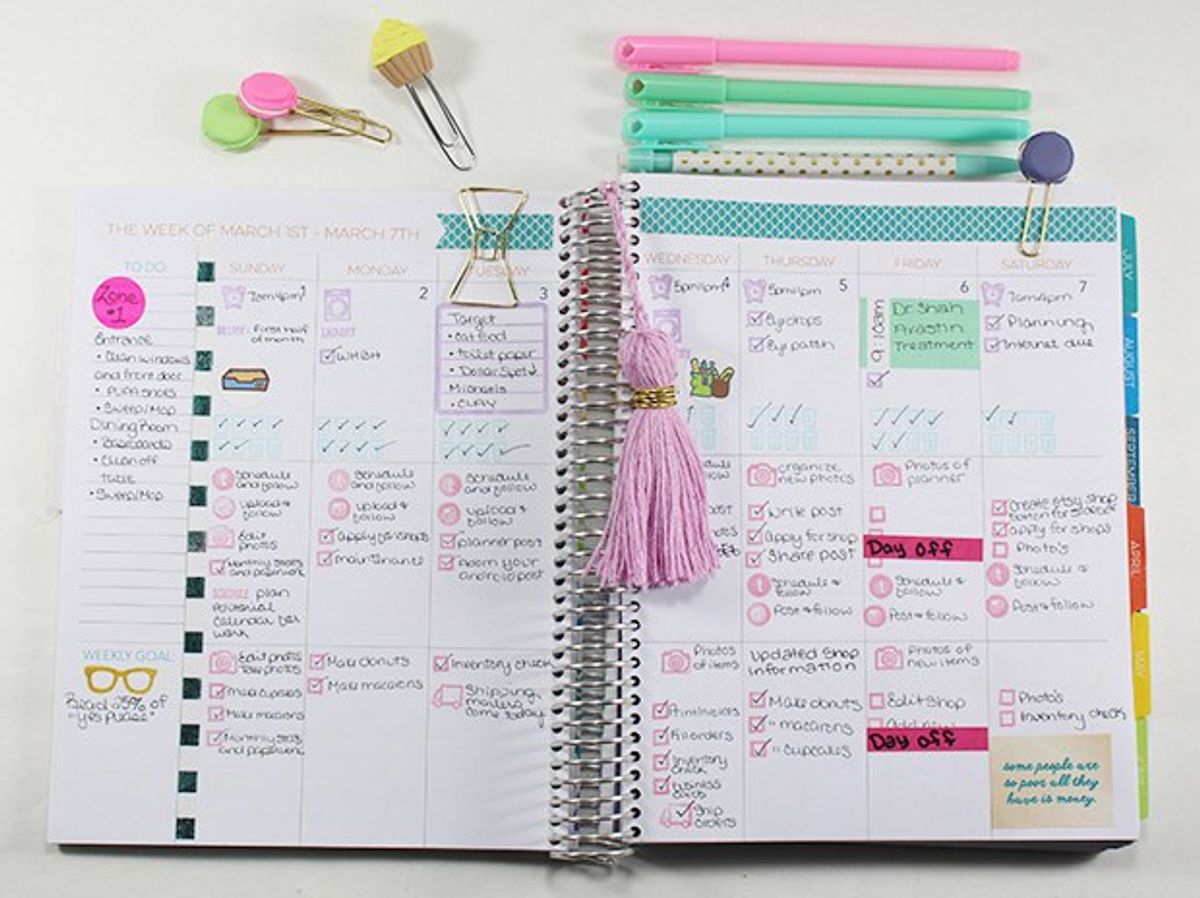 THE WEEK OF MARCH 1ST - MARCH 7TH
TO DO:
Zone
#1
Entrance
• Clean windows
and front door
• Sweep/Mop
Dining Room
• Baseboards
• Clean off
Table
• Sweep/Mop
WEEKLY GOAL:
Read 25% of
"Yes Please"
SUNDAY
1
First half
of month
Schedule
and follow
Upload &
follow
Edit
photos
Monthly stats
and paperwork
plan
potential
calendar for
work
Edit photos
Take photos
Make cupcakes
Make macarons
Monthly stats
and paperwork
MONDAY
2
LAUNDRY
WASH
Schedule
and follow
Upload &
follow
Apply for shops
maintenance
Make donuts
Make macarons
TUESDAY
3
Target
• Cat food
• toilet paper
• Dollar Spot
Michaels
• CLAY
Schedule
and follow
Upload &
follow
planner post
Adorn your
android post
Inventory check
Shipping
mailers
come today
WEDNESDAY
4
Photos
of items
Print invoices
Fill orders
Inventory
check
business
cards
Ship
orders
THURSDAY
5
Eye drops
Eye patch
organize
new photos
Write post
Apply for shop
Share post
Schedule &
follow
Post & follow
Updated Shop
information
Make donuts
" macarons
" cupcakes
FRIDAY
6
9:10am
Dr. Shah
Avastin
Treatment
Photos of
planner
Day off
Schedule &
follow
Post & follow
Photos of
new items
Edit Shop
Day off
SATURDAY
7
Planning
Internet due
Create etsy shop
apply for shops
Photo's
Schedule &
follow
Post & follow
Photo's
Inventory check
some people are
so poor all they
have is money.
JULY
AUGUST
SEPTEMBER
APRIL
MAY